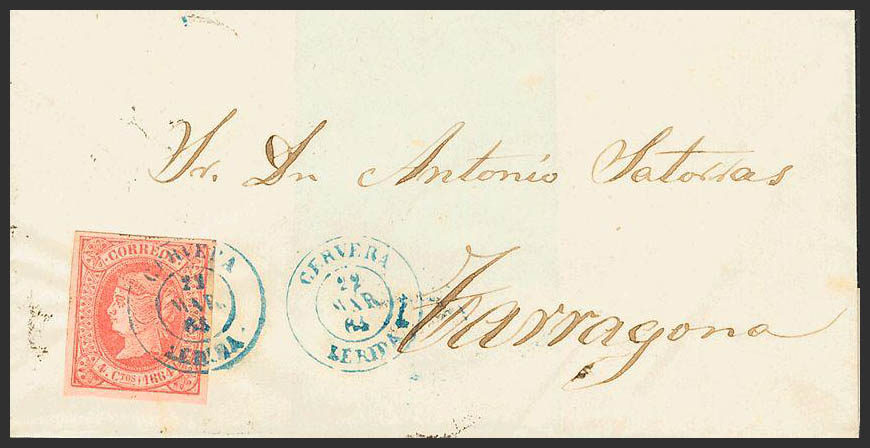 Sr. Dn Antonio Satorras
Tarragona
CORREOS
4 Ctos 1864
CERVERA
22
MAR.
64
LERIDA.
CERVERA
22
MAR
64
LERIDA